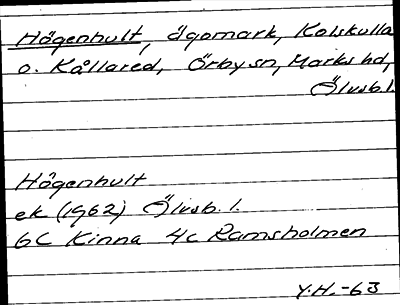 Högenhult, ägomark, Kolskulla
o. Kållared, Örby sn, Marks hd,
Älvsb.l.
Högenhult
ek (1962) Älvsb. l.
6C Kinna 4c Ramsholmen
Y.H.-63